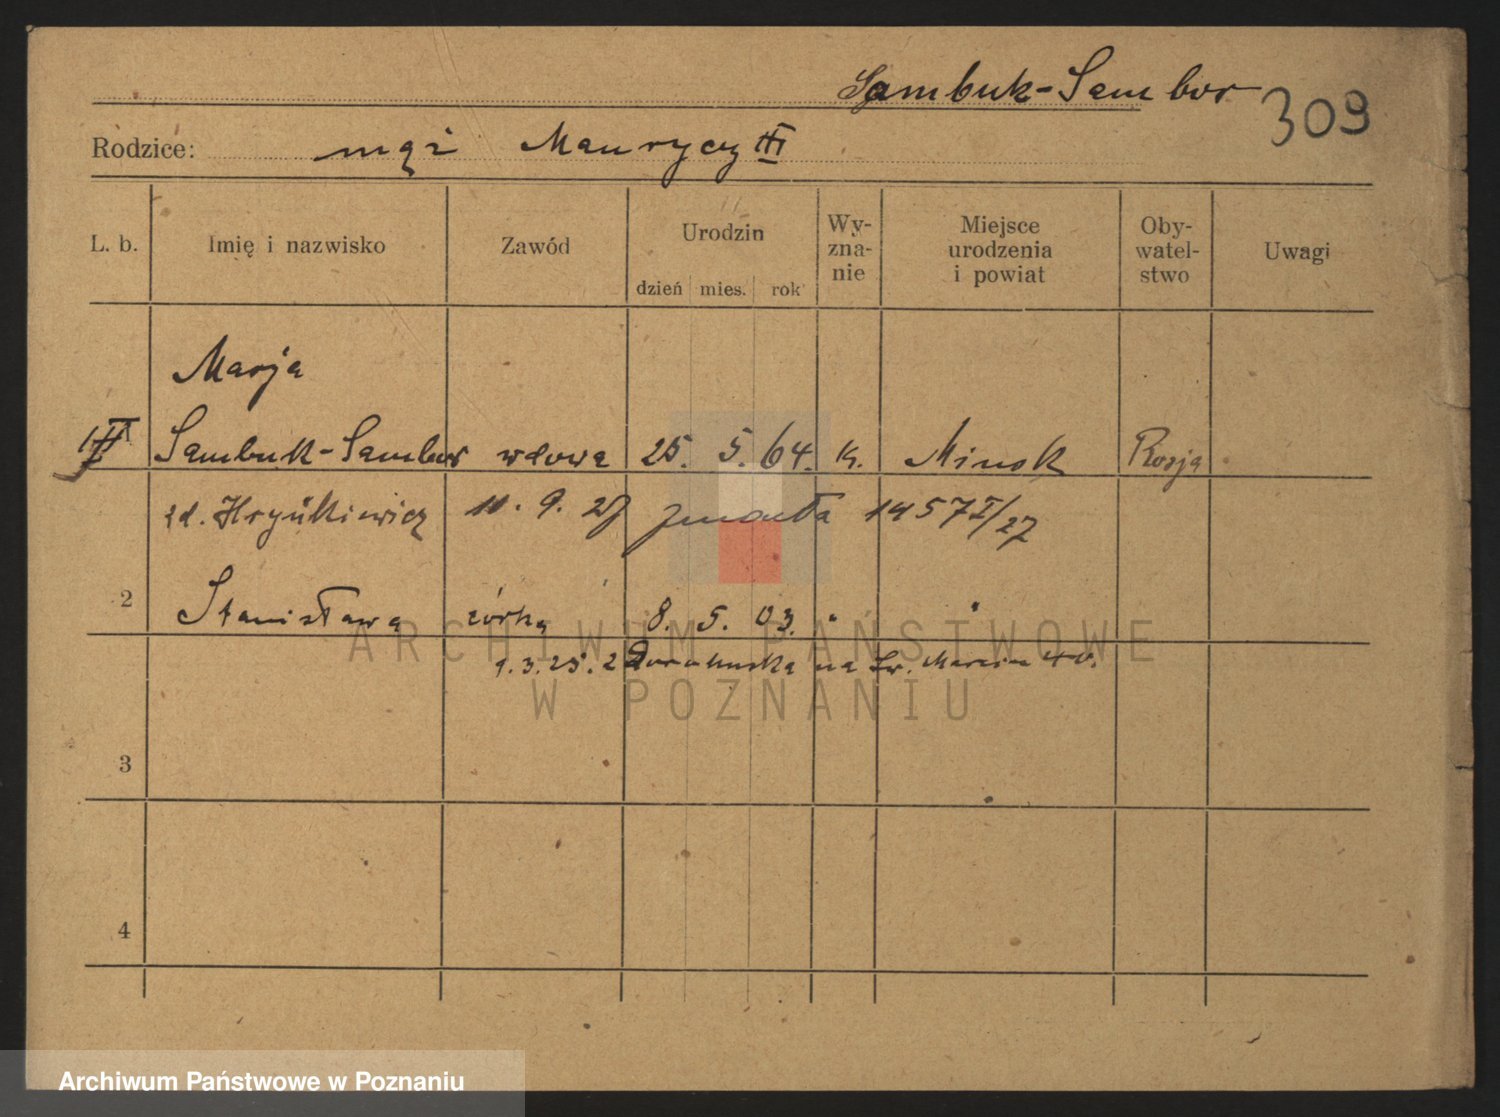 Sambuk-Sambor 309
Rodzice: mąż Maurycy III
L. b. Imię i nazwisko Zawód Urodzin dzień mies. rok Wy-
zna-
nie Miejsce
urodzenia
i powiat Oby-
watel-
stwo Uwagi
Marja
Sambuk-Sambor wdowa 25. 5. 64. k. Minsk Rosja
zd. Hryńkiewicz 11. 9. 27 zmarła 1457 I/27
2 Stanisława córka 8. 5. 03. " "
9.3.25. z na Św. Marcin 40.
3
4
ARCHIWUM PAŃSTWOWE
W POZNANIU
Archiwum Państwowe w Poznaniu